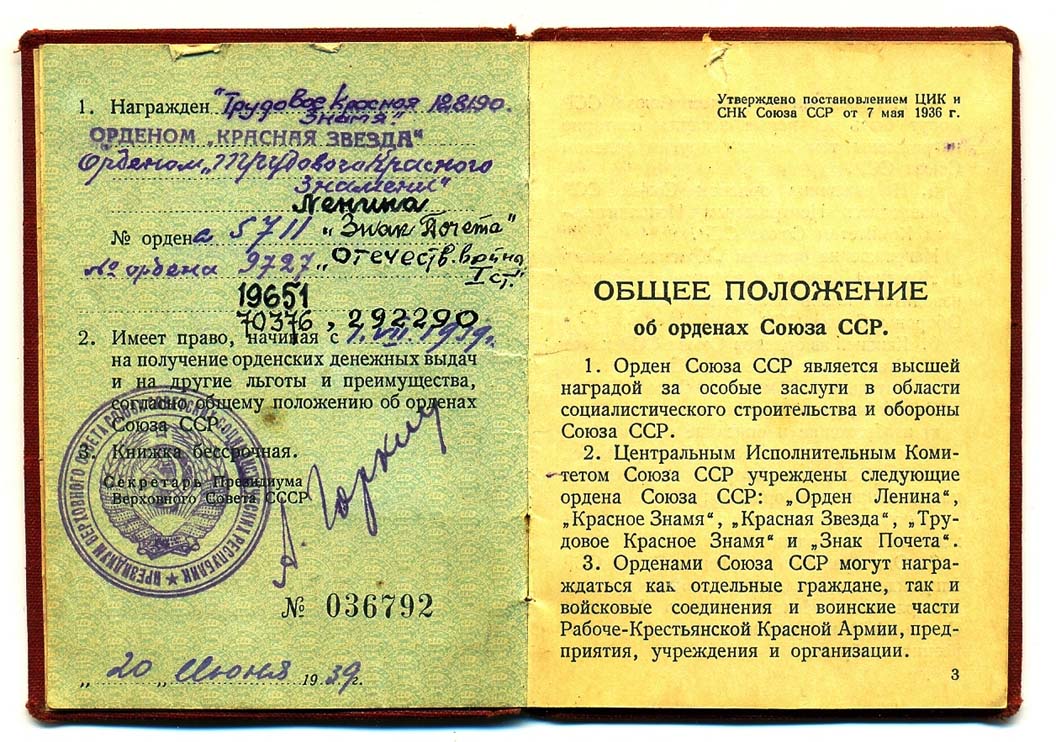 1. Награжден "Трудовое Красная 128190.
Знамя"
ОРДЕНОМ „КРАСНАЯ ЗВЕЗДА“
Орденом „Трудового Красного
Знамени"
Ленина
№ ордена 5711 „Знак Почета"
№ ордена 9727 „Отечеств. война
I ст."
19651
70376, 292290
2. Имеет право, начиная с 1.VII.1939г.
на получение орденских денежных выдач
и на другие льготы и преимущества,
согласно общему положению об орденах
Союза ССР.
3. Книжка бессрочная.
Секретарь Президиума
Верховного Совета СССР
А. Горкин
№ 036792
„20„ Июня 1939г.
ПРЕЗИДИУМ ВЕРХОВНОГО СОВЕТА
РЕСПУБЛИК
Утверждено постановлением ЦИК и
СНК Союза ССР от 7 мая 1936 г.
ОБЩЕЕ ПОЛОЖЕНИЕ
об орденах Союза ССР.
1. Орден Союза ССР является высшей
наградой за особые заслуги в области
социалистического строительства и обороны
Союза ССР.
2. Центральным Исполнительным Коми-
тетом Союза ССР учреждены следующие
ордена Союза ССР: „Орден Ленина“,
„Красное Знамя“, „Красная Звезда“, „Тру-
довое Красное Знамя“ и „Знак Почета“.
3. Орденами Союза ССР могут награ-
ждаться как отдельные граждане, так и
войсковые соединения и воинские части
Рабоче-Крестьянской Красной Армии, пред-
приятия, учреждения и организации.
3